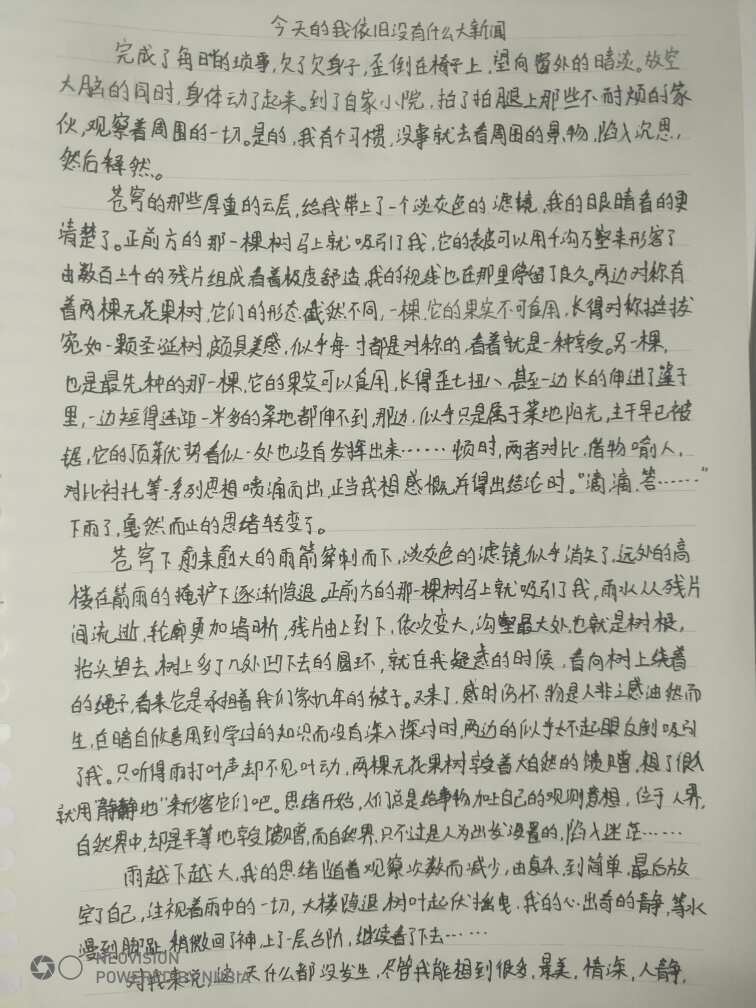 今天的我依旧没有什么大新闻
完成了每日的琐事,欠了欠身子,歪倒在椅子上,望向窗外的暗淡。放空
大脑的同时,身体动了起来。到了自家小院,拍了拍腿上那些不耐烦的家
伙,观察着周围的一切。是的,我有个习惯,没事就去看周围的景物,陷入沉思,
然后释然。
苍穹的那些厚重的云层,给我带上了一个淡灰色的滤镜,我的眼睛看的更
清楚了。正前方的那一棵树马上就吸引了我,它的表皮可以用千沟万壑来形容了
由数百上千的残片组成,看着极度舒适,我的视线也在那里停留了良久。两边对称有
着两棵无花果树,它们的形态截然不同,一棵,它的果实不可食用,长得对称挺拔
宛如一颗圣诞树,颇具美感,似乎每寸都是对称的,看着就是一种享受。另一棵,
也是最先种的那一棵,它的果实可以食用,长得歪七扭八,甚至一边长的伸进了篷子
里,一边短得连距一米多的菜地都伸不到,那边,似乎只是属于菜地阳光,主干早已被
锯,它的顶芽优势看似一处也没有发挥出来……顿时,两者对比,借物喻人,
对比衬托等一系列思想喷涌而出,正当我想感慨并得出结论时。“滴,滴,答……”
下雨了,戛然而止的思绪转变了。
苍穹下愈来愈大的雨箭穿刺而下,淡灰色的滤镜似乎消失了,远处的高
楼在箭雨的掩护下逐渐隐退。正前方的那一棵树马上就吸引了我,雨水从残片
间流逝,轮廓更加清晰,残片由上到下,依次变大,沟壑最大处也就是树根,
抬头望去,树上多了几处凹下去的圆环,就在我疑惑的时候,看向树上绕着
的绳子,看来它是承担着我们家几年的被子。又来了,感时伤怀,物是人非之感油然而
生,在暗自欣喜用到学过的知识而没有深入探讨时,两边的似乎大不起眼反倒吸引
了我。只听得雨打叶声却不见叶动,两棵无花果树享受着大自然的馈赠,想了很久
就用“静静地”来形容它们吧。思绪开始,人们总是给事物加上自己的观测意想,位于人界,
自然界中,却是平等地享受馈赠,而自然界,只不过是人为出发设置的,陷入迷茫……
雨越下越大,我的思绪随着观察次数而减少,由复杂,到简单,最后放
空了自己,注视着雨中的一切,大楼隐退,树叶起伏摇曳,我的心出奇的静,等水
漫到脚趾,稍微回了神,上了一层台阶,继续看了下去……
对我来说,这一天什么都没发生,尽管我能想到很多,景美,情深,人静,
NEOVISION
POWERED BY NUBIA